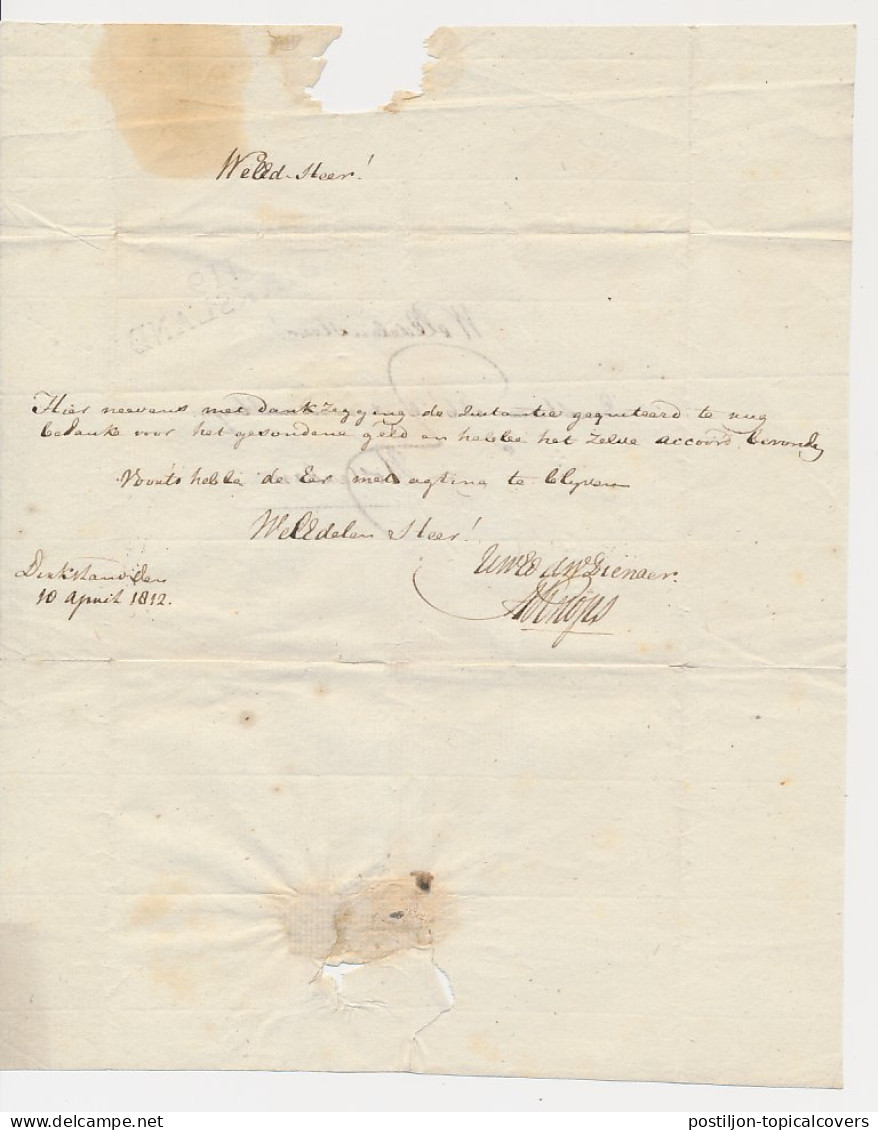 WelEd. Heer!
Hier neevens met dankzegging de quitantie gequiteerd te rug
bedanke voor het gesondene geld en hebbe het zelve accoord bevonden
Voorts hebbe de Eer met agting te blyven
WelEdelen Heer!
UwEd dw Dienaer.
Dirksland den
10 April 1812.
SLAND
postiljon-topicalcovers